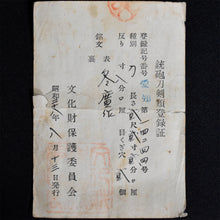 銃砲刀剣類登録証
登録記号番号 愛知 第一二四四号
種別 刀
長さ 貳尺貳寸 分 厘
反り 寸八分 厘
目くぎ穴 貳個
銘文 表 冬廣作
裏
昭和 年八月十三日発行
文化財保護委員会